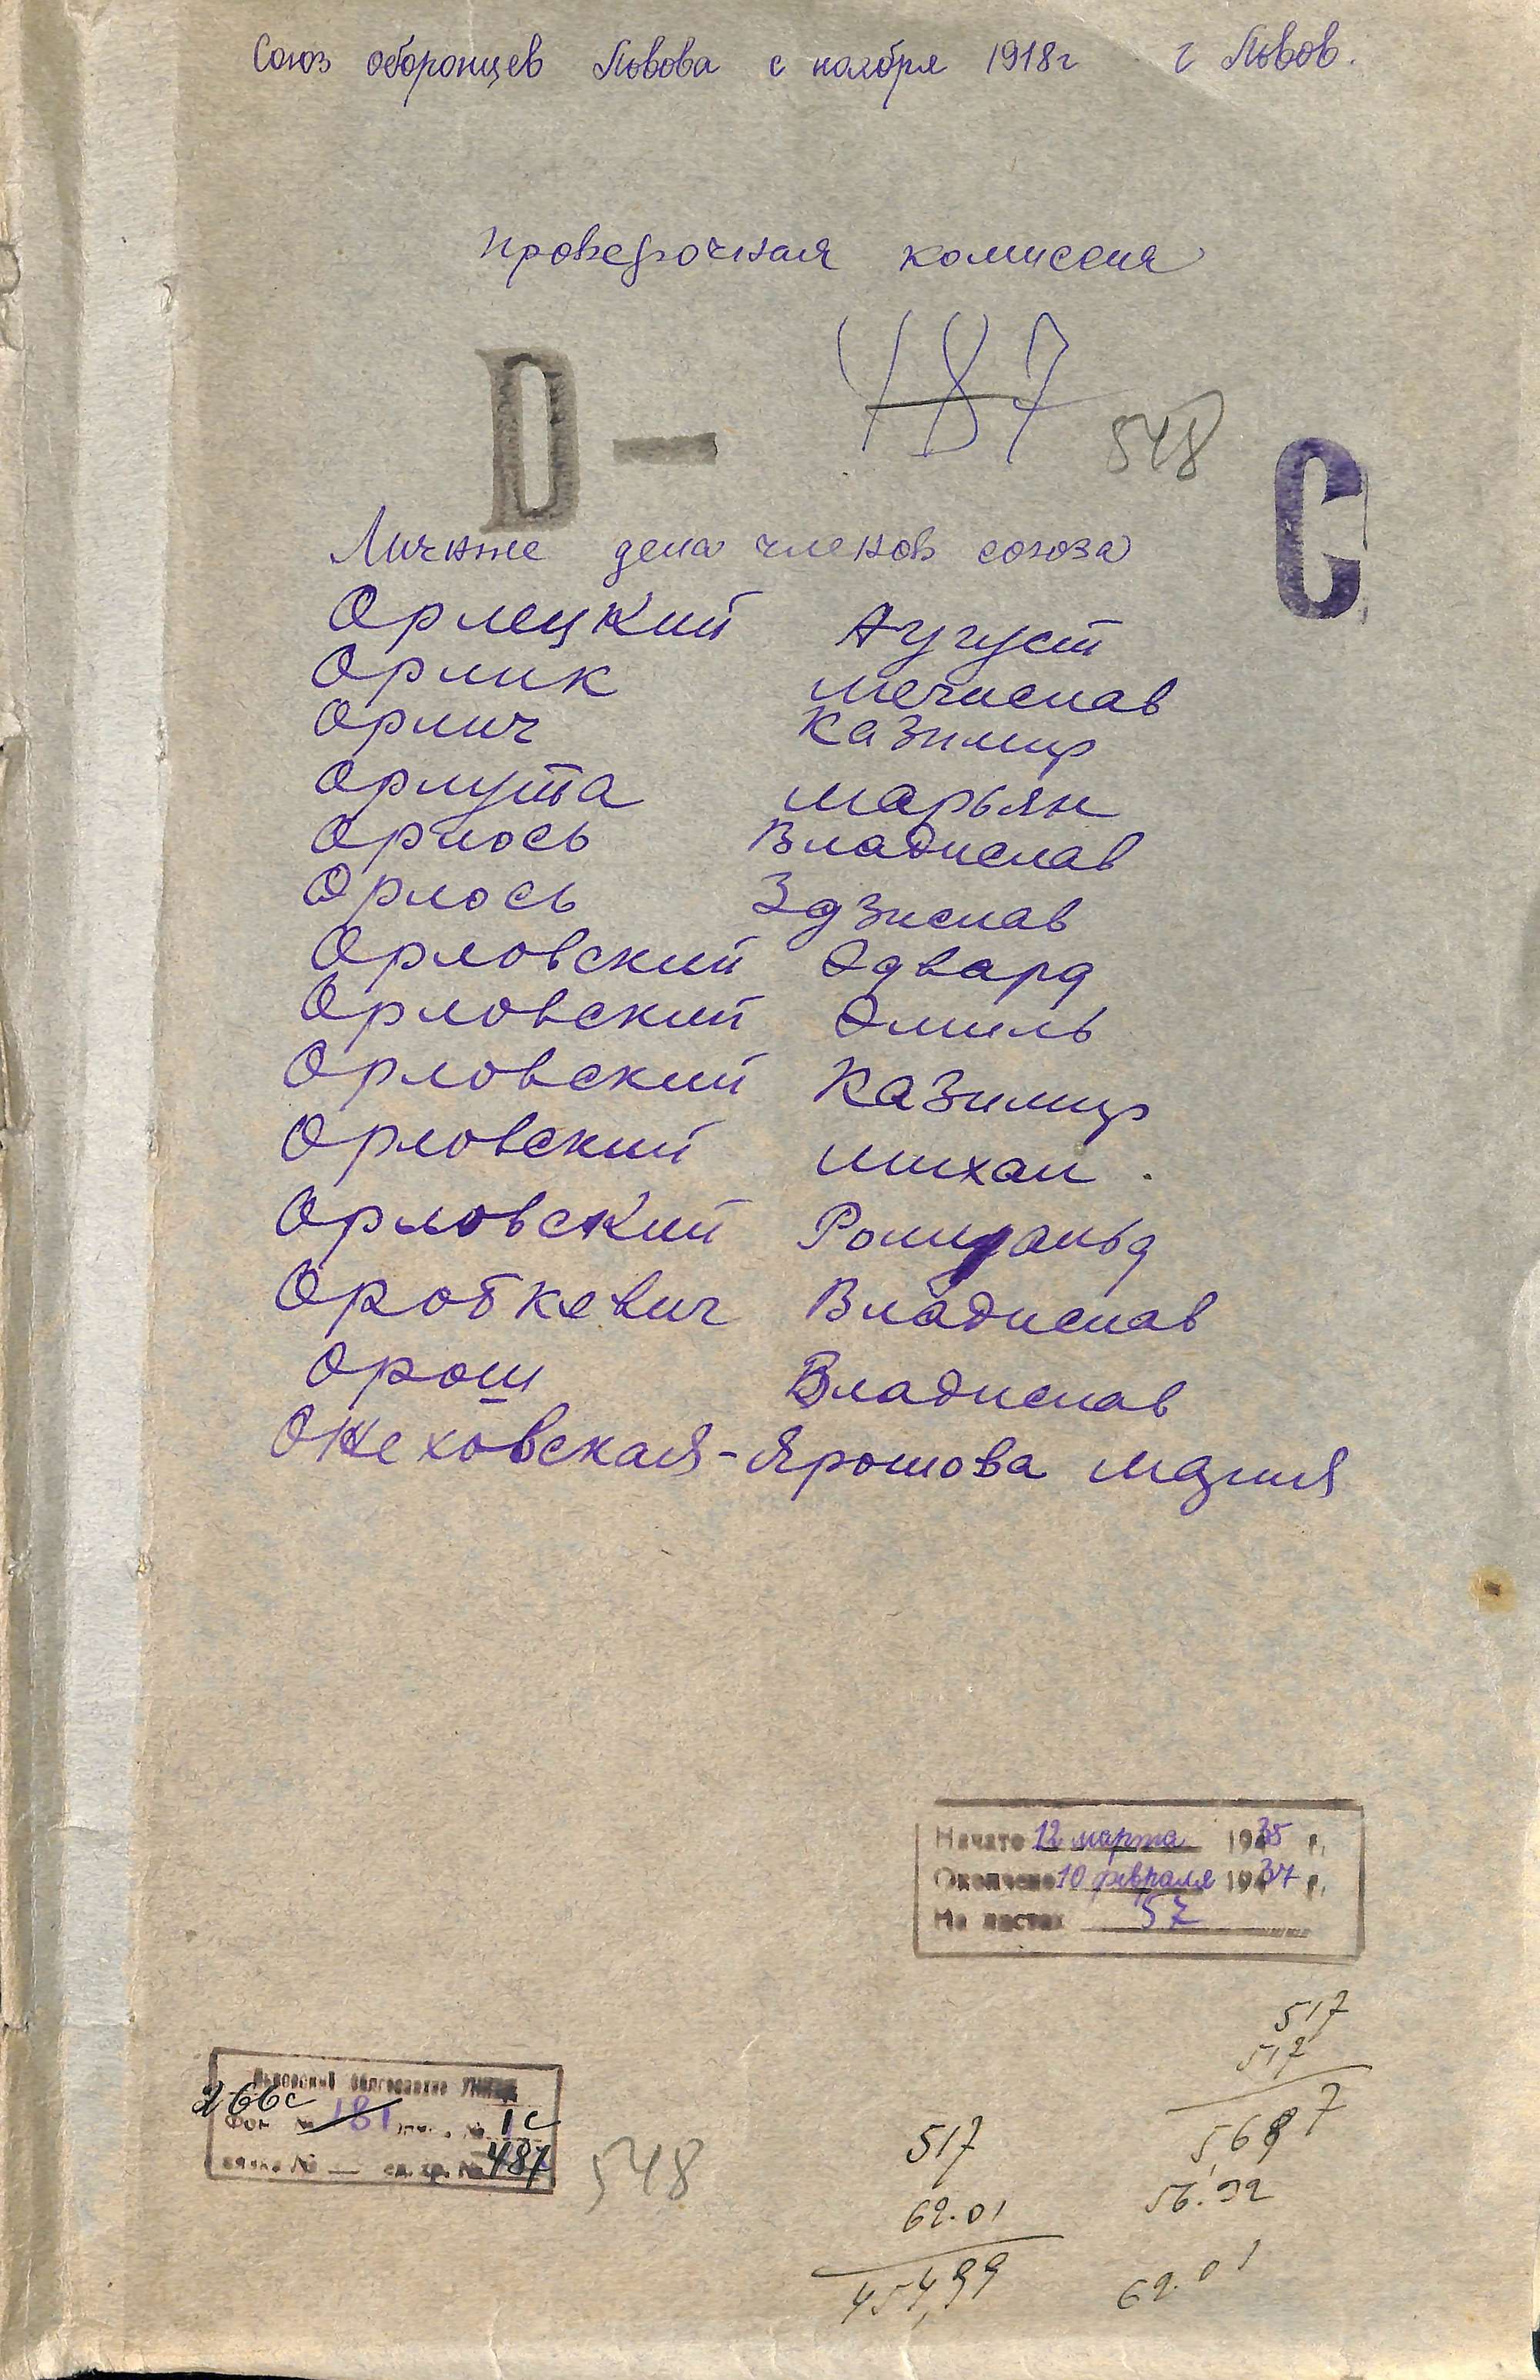 Союз оборонцев Львова с ноября 1918г г Львов.
Проверочная комиссия
487
D —
548
С
Личные дела членов союза
Орлецкий Август
Орлик Мечислав
Орлич Казимир
Орлута Марьян
Орлось Владислав
Орлось Здзислав
Орловский Эдвард
Орловский Эмиль
Орловский Казимир
Орловский Михал.
Орловский Ромуальд
Оробкевич Владислав
Орош Владислав
Ожеховская-Ярошова Мария
Начато 12 марта 1935 г.
Окончено 10 февраля 1937 г.
На листах 57
Львовский облгосархив
266с
Фон № 181 опись № 1с
связка № — ед. хр. № 487
548
517
517
5,687
56.32
62.01
517
62.01
454,99